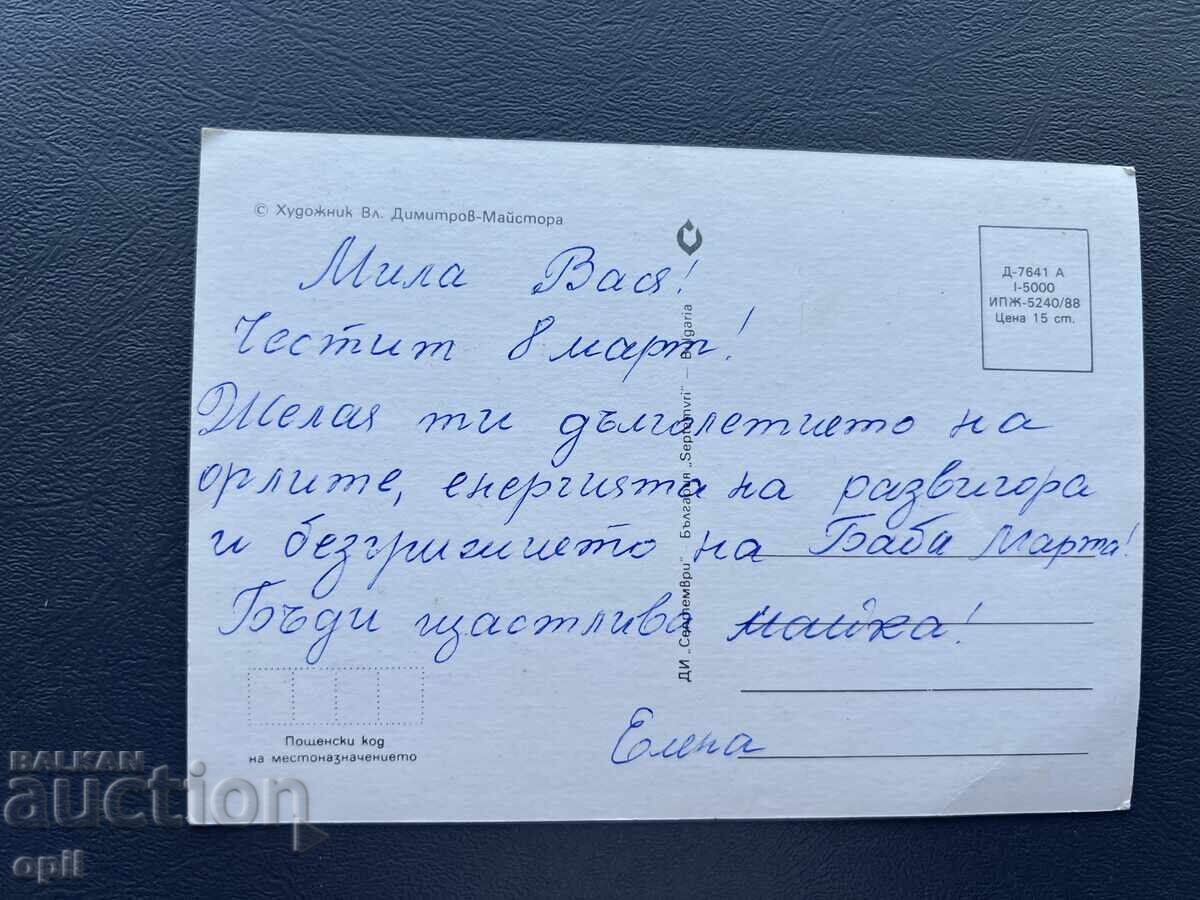 © Художник Вл. Димитров-Майстора
Мила Вася!
Честит 8 март!
Желая ти дълголетието на
орлите, енергията на развигора
и безгрижието на Баба Марта!
Бъди щастлива майка!
Елена
Д-7641 А
I-5000
ИПЖ-5240/88
Цена 15 ст.
ДИ „Септември" България „Septemvri" — Bulgaria
Пощенски код
на местоназначението
BALKAN
auction
opil